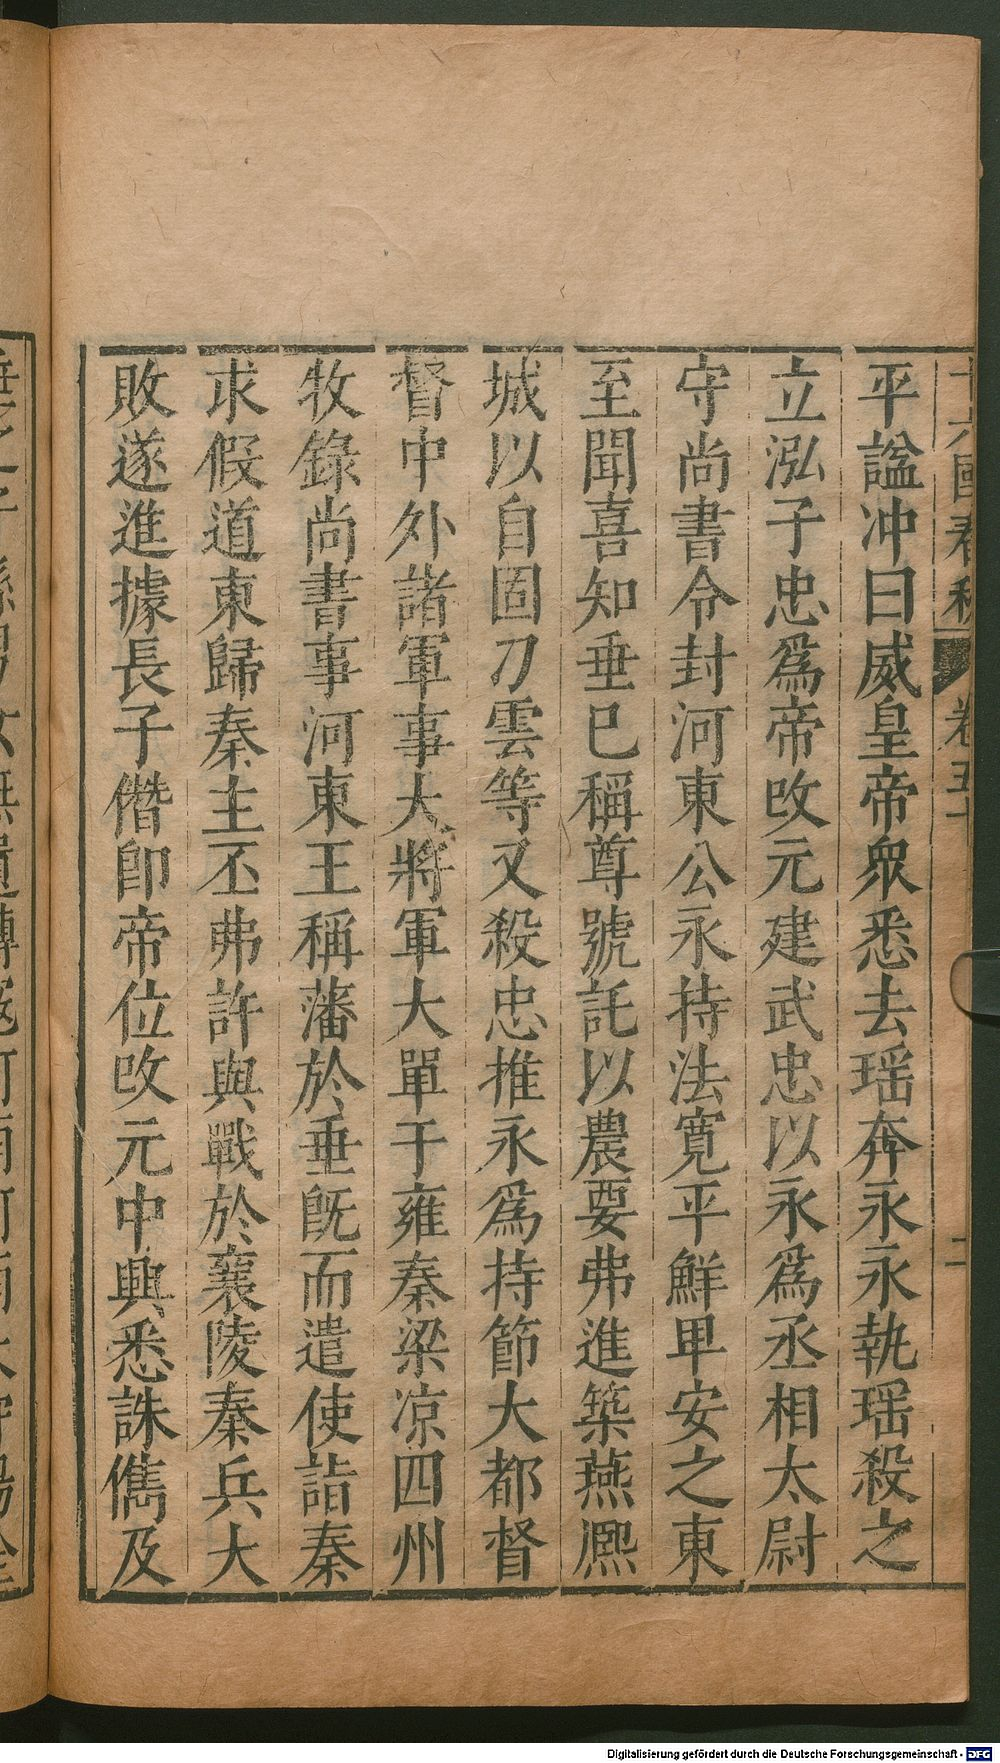 十六國春秋 卷五十 二
平諡冲曰威皇帝衆悉去瑶奔永永執瑶殺之
立泓子忠爲帝改元建武忠以永爲丞相太尉
守尚書令封河東公永持法寛平鮮卑安之東
至聞喜知垂已稱尊號託以農要弗進築燕熈
城以自固刀雲等又殺忠推永爲持節大都督
督中外諸軍事大將軍大單于雍秦梁凉四州
牧錄尚書事河東王稱藩於垂旣而遣使詣秦
求假道東歸秦主丕弗許與戰於襄陵秦兵大
敗遂進據長子僭卽帝位改元中興悉誅儁及
Digitalisierung gefördert durch die Deutsche Forschungsgemeinschaft - DFG